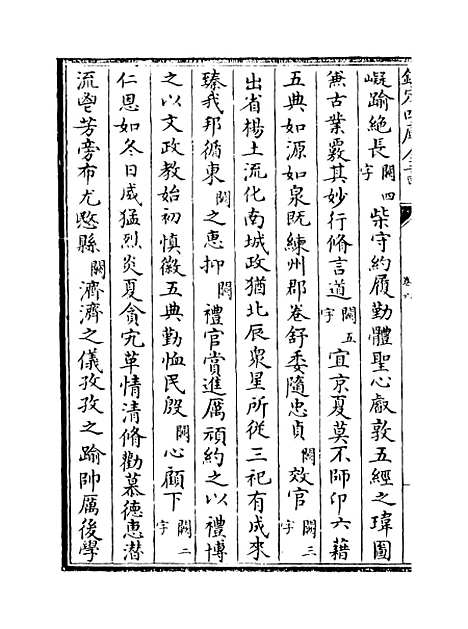 欽定四庫全書
卷六
嶷踰絶長闕四字柴守約履勤體聖心叡敦五經之瑋圖
兼古業覈其妙行脩言道闕五字宜京夏莫不師卬六藉
五典如源如泉既練州郡卷舒委隨忠貞闕效官闕三字
出省楊土流化南城政猶北辰衆星所從三祀有成來
臻我邦循東闕之惠抑闕禮官賞進厲頑約之以禮博
之以文政教始初慎徽五典勤恤民殷闕心顧下闕二字
仁恩如冬日威猛烈炎夏貪宄革情清脩勸慕德惠潛
流鬯芳旁布尤愍縣闕濟濟之儀孜孜之踰帥厲後學